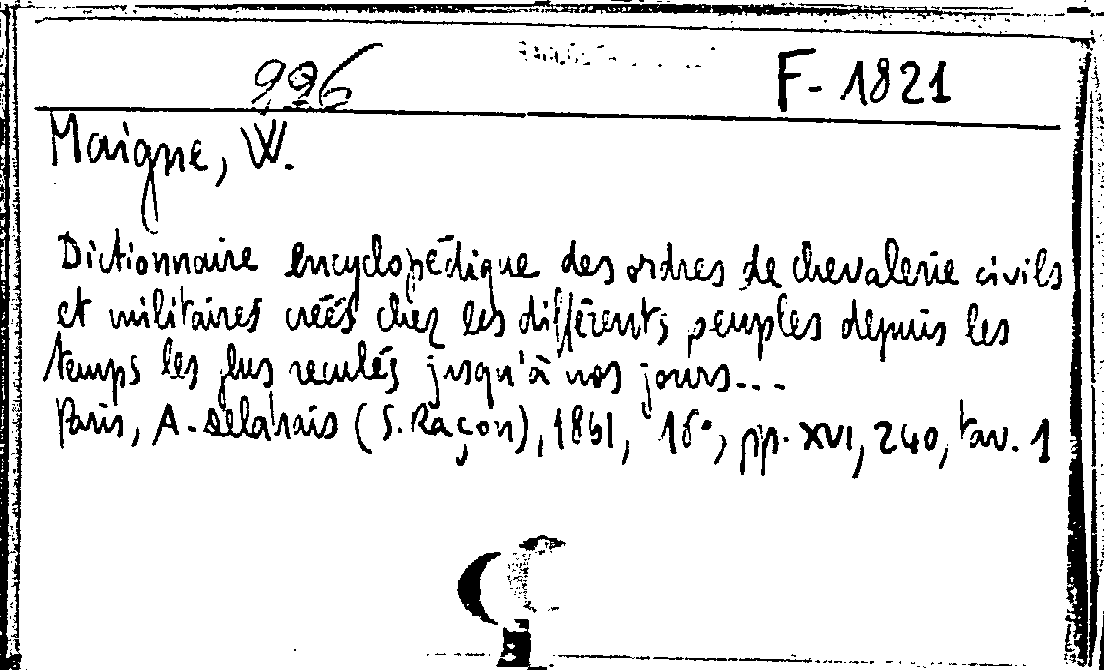 226 F-1821
Maigne, W.
Dictionnaire encyclopédique des ordres de chevalerie civils
et militaires créés chez les différents peuples depuis les
temps les plus reculés jusqu'à nos jours...
Paris, A. Delahais (S. Raçon), 1861, 16°, pp. XVI, 240, tav. 1